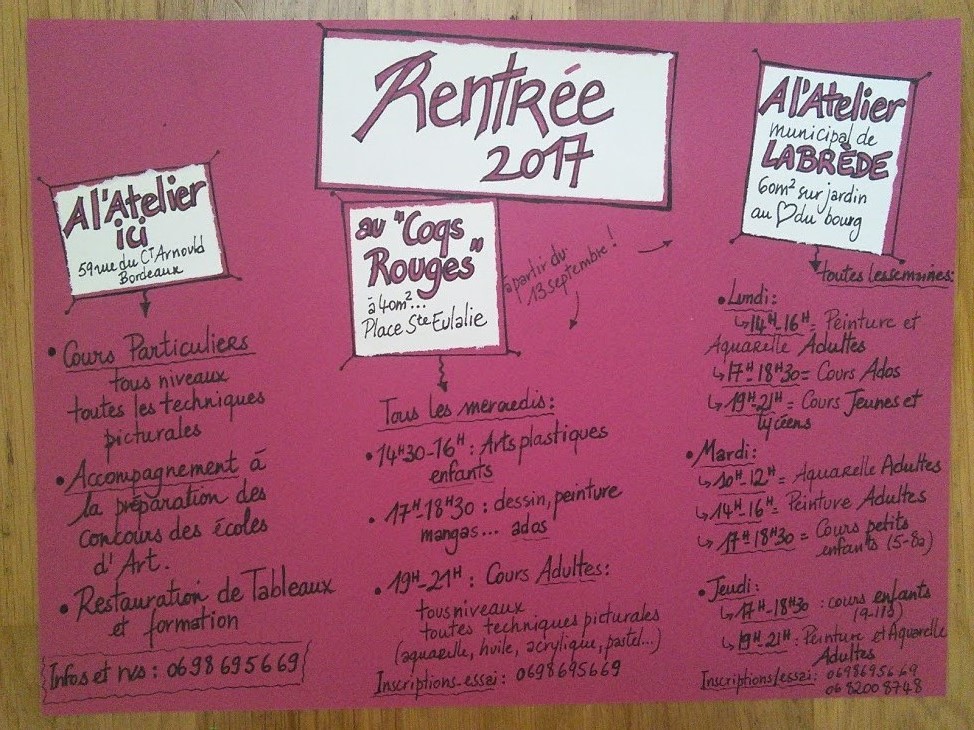 Rentrée
2017
A l'Atelier
ici
59 rue du Ct Arnould
Bordeaux
• Cours Particuliers
tous niveaux
toutes les techniques
picturales
• Accompagnement à
la préparation des
concours des écoles
d'Art.
• Restauration de Tableaux
et formation
Infos et rvs : 0698695669
au "Coqs
Rouges"
à 40m²...
Place Ste Eulalie
à partir du
13 septembre !
Tous les mercredis :
• 14H30-16H : Arts plastiques
enfants
• 17H-18H30 : dessin, peinture
mangas... ados
• 19H-21H : Cours Adultes :
tous niveaux
toutes techniques picturales
(aquarelle, huile, acrylique, pastel...)
Inscriptions-essai : 0698695669
A l'Atelier
municipal de
LABRÈDE
60m² sur jardin
au ♡ du bourg
toutes les semaines :
• Lundi :
↳ 14H-16H = Peinture et
Aquarelle Adultes
↳ 17H-18H30 = Cours Ados
↳ 19H-21H = Cours Jeunes et
lycéens
• Mardi :
↳ 10H-12H = Aquarelle Adultes
↳ 14H-16H = Peinture Adultes
↳ 17H-18H30 = Cours petits
enfants (5-8a)
• Jeudi :
↳ 17H-18H30 : cours enfants
(9-11a)
↳ 19H-21H : Peinture et Aquarelle
Adultes
Inscriptions/essai : 0698695669
0682008748